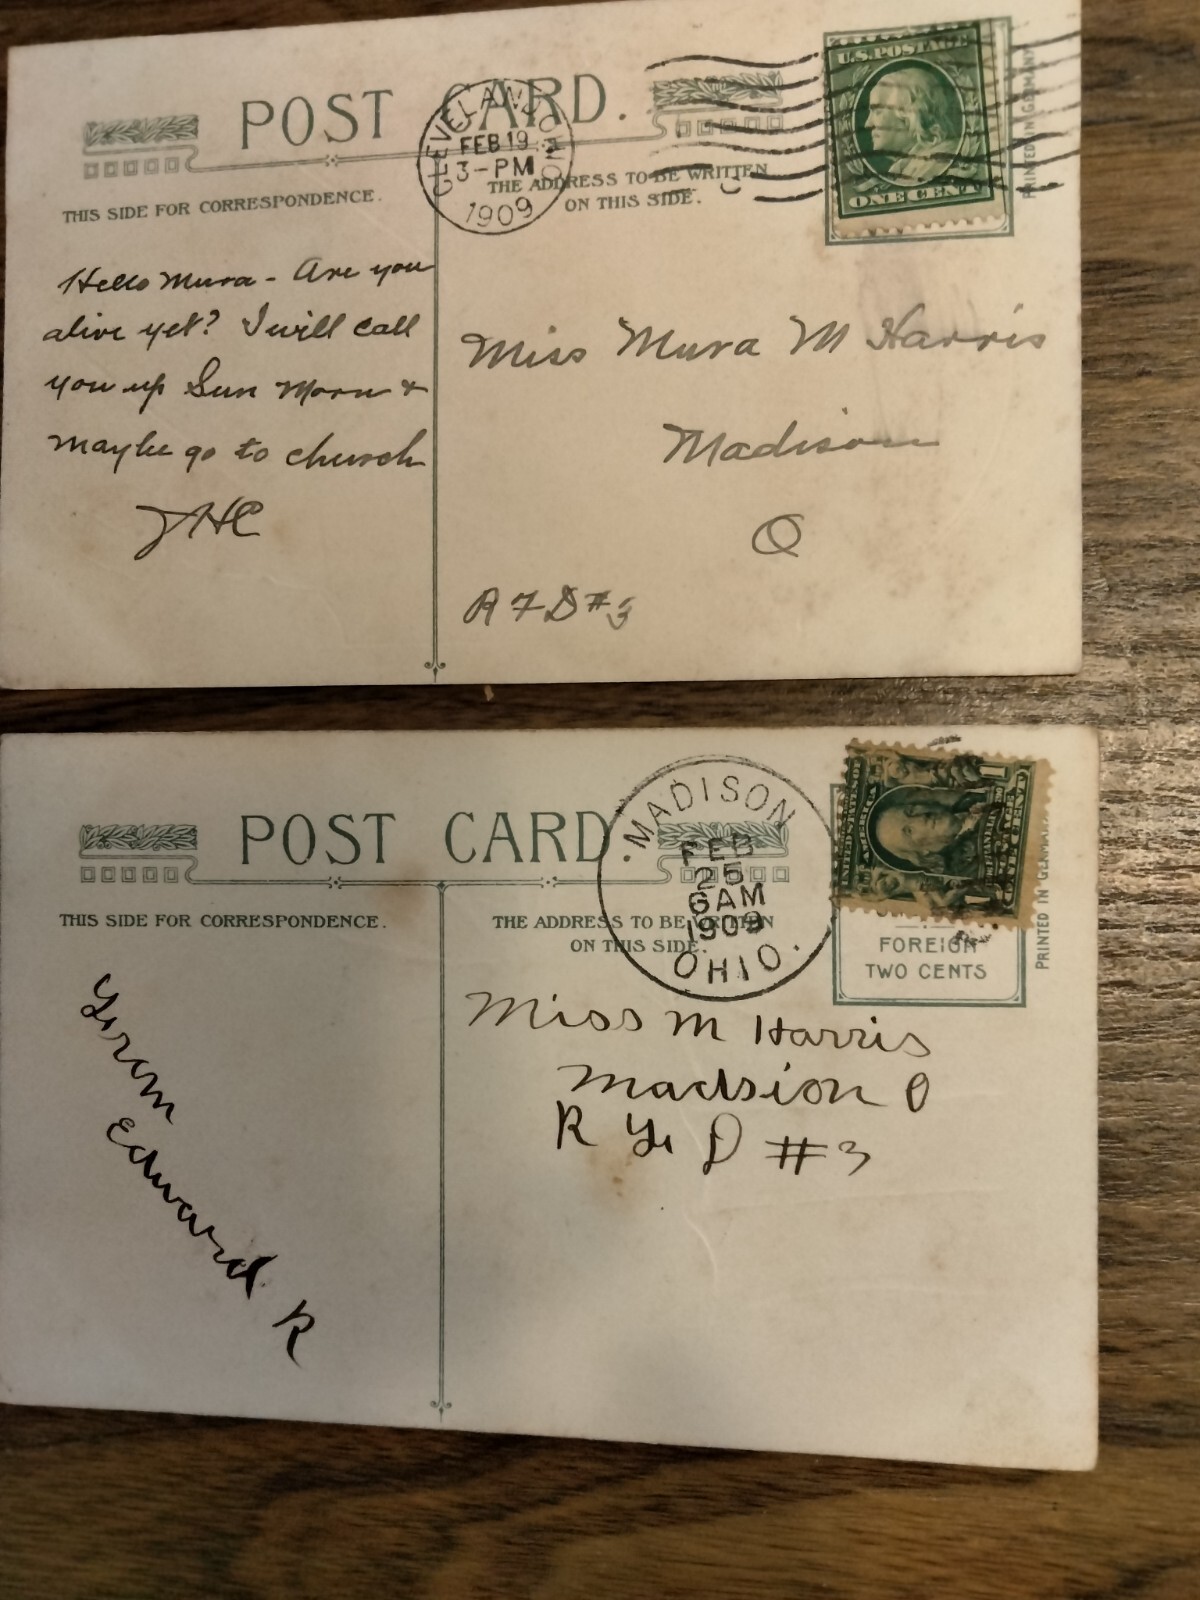 POST CARD.
CLEVELAND, OHIO
FEB 19
3-PM
1909
U.S. POSTAGE
ONE CENT
PRINTED IN GERMANY
THIS SIDE FOR CORRESPONDENCE.
THE ADDRESS TO BE WRITTEN
ON THIS SIDE.
Hello Mura - Are you
alive yet? I will call
you up Sun Morn &
maybe go to church
JHC
Miss Mura M Harris
Madison
O
R F D #3
POST CARD.
MADISON
FEB
25
6AM
1909
OHIO.
1
ONE CENT
FOREIGN
TWO CENTS
PRINTED IN GERMANY
THIS SIDE FOR CORRESPONDENCE.
THE ADDRESS TO BE WRITTEN
ON THIS SIDE.
From
Edward R
Miss M Harris
Madsion O
R F D #3